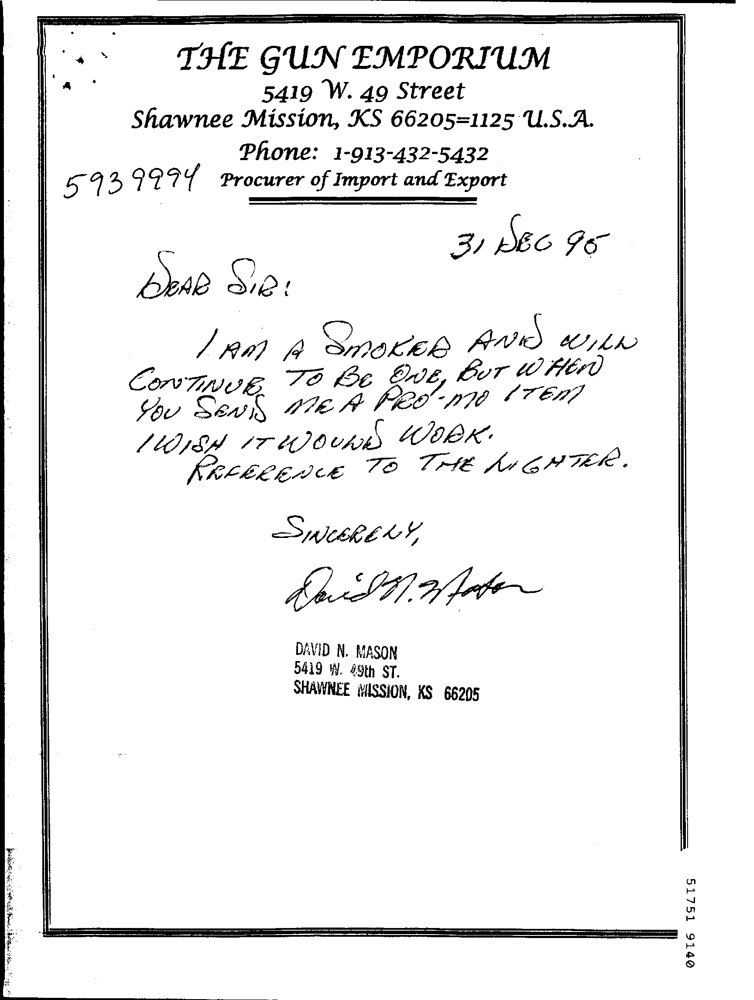 THE GUN EMPORIUM
5419 W. 49 Street
Shawnee Mission, KS 66205=1125 U.S.A.
Phone: 1-913-432-5432
5939994 Procurer of Import and Export
31 DEC 95
DEAR SIR:
I AM A SMOKER AND WILL
CONTINUE TO BE ONE, BUT WHEN
YOU SEND ME A PRO-MO ITEM
I WISH IT WOULD WORK.
REFERENCE TO THE LIGHTER.
SINCERELY,
David N. Mason
DAVID N. MASON
5419 W. 49th ST.
SHAWNEE MISSION, KS 66205
51751 9140